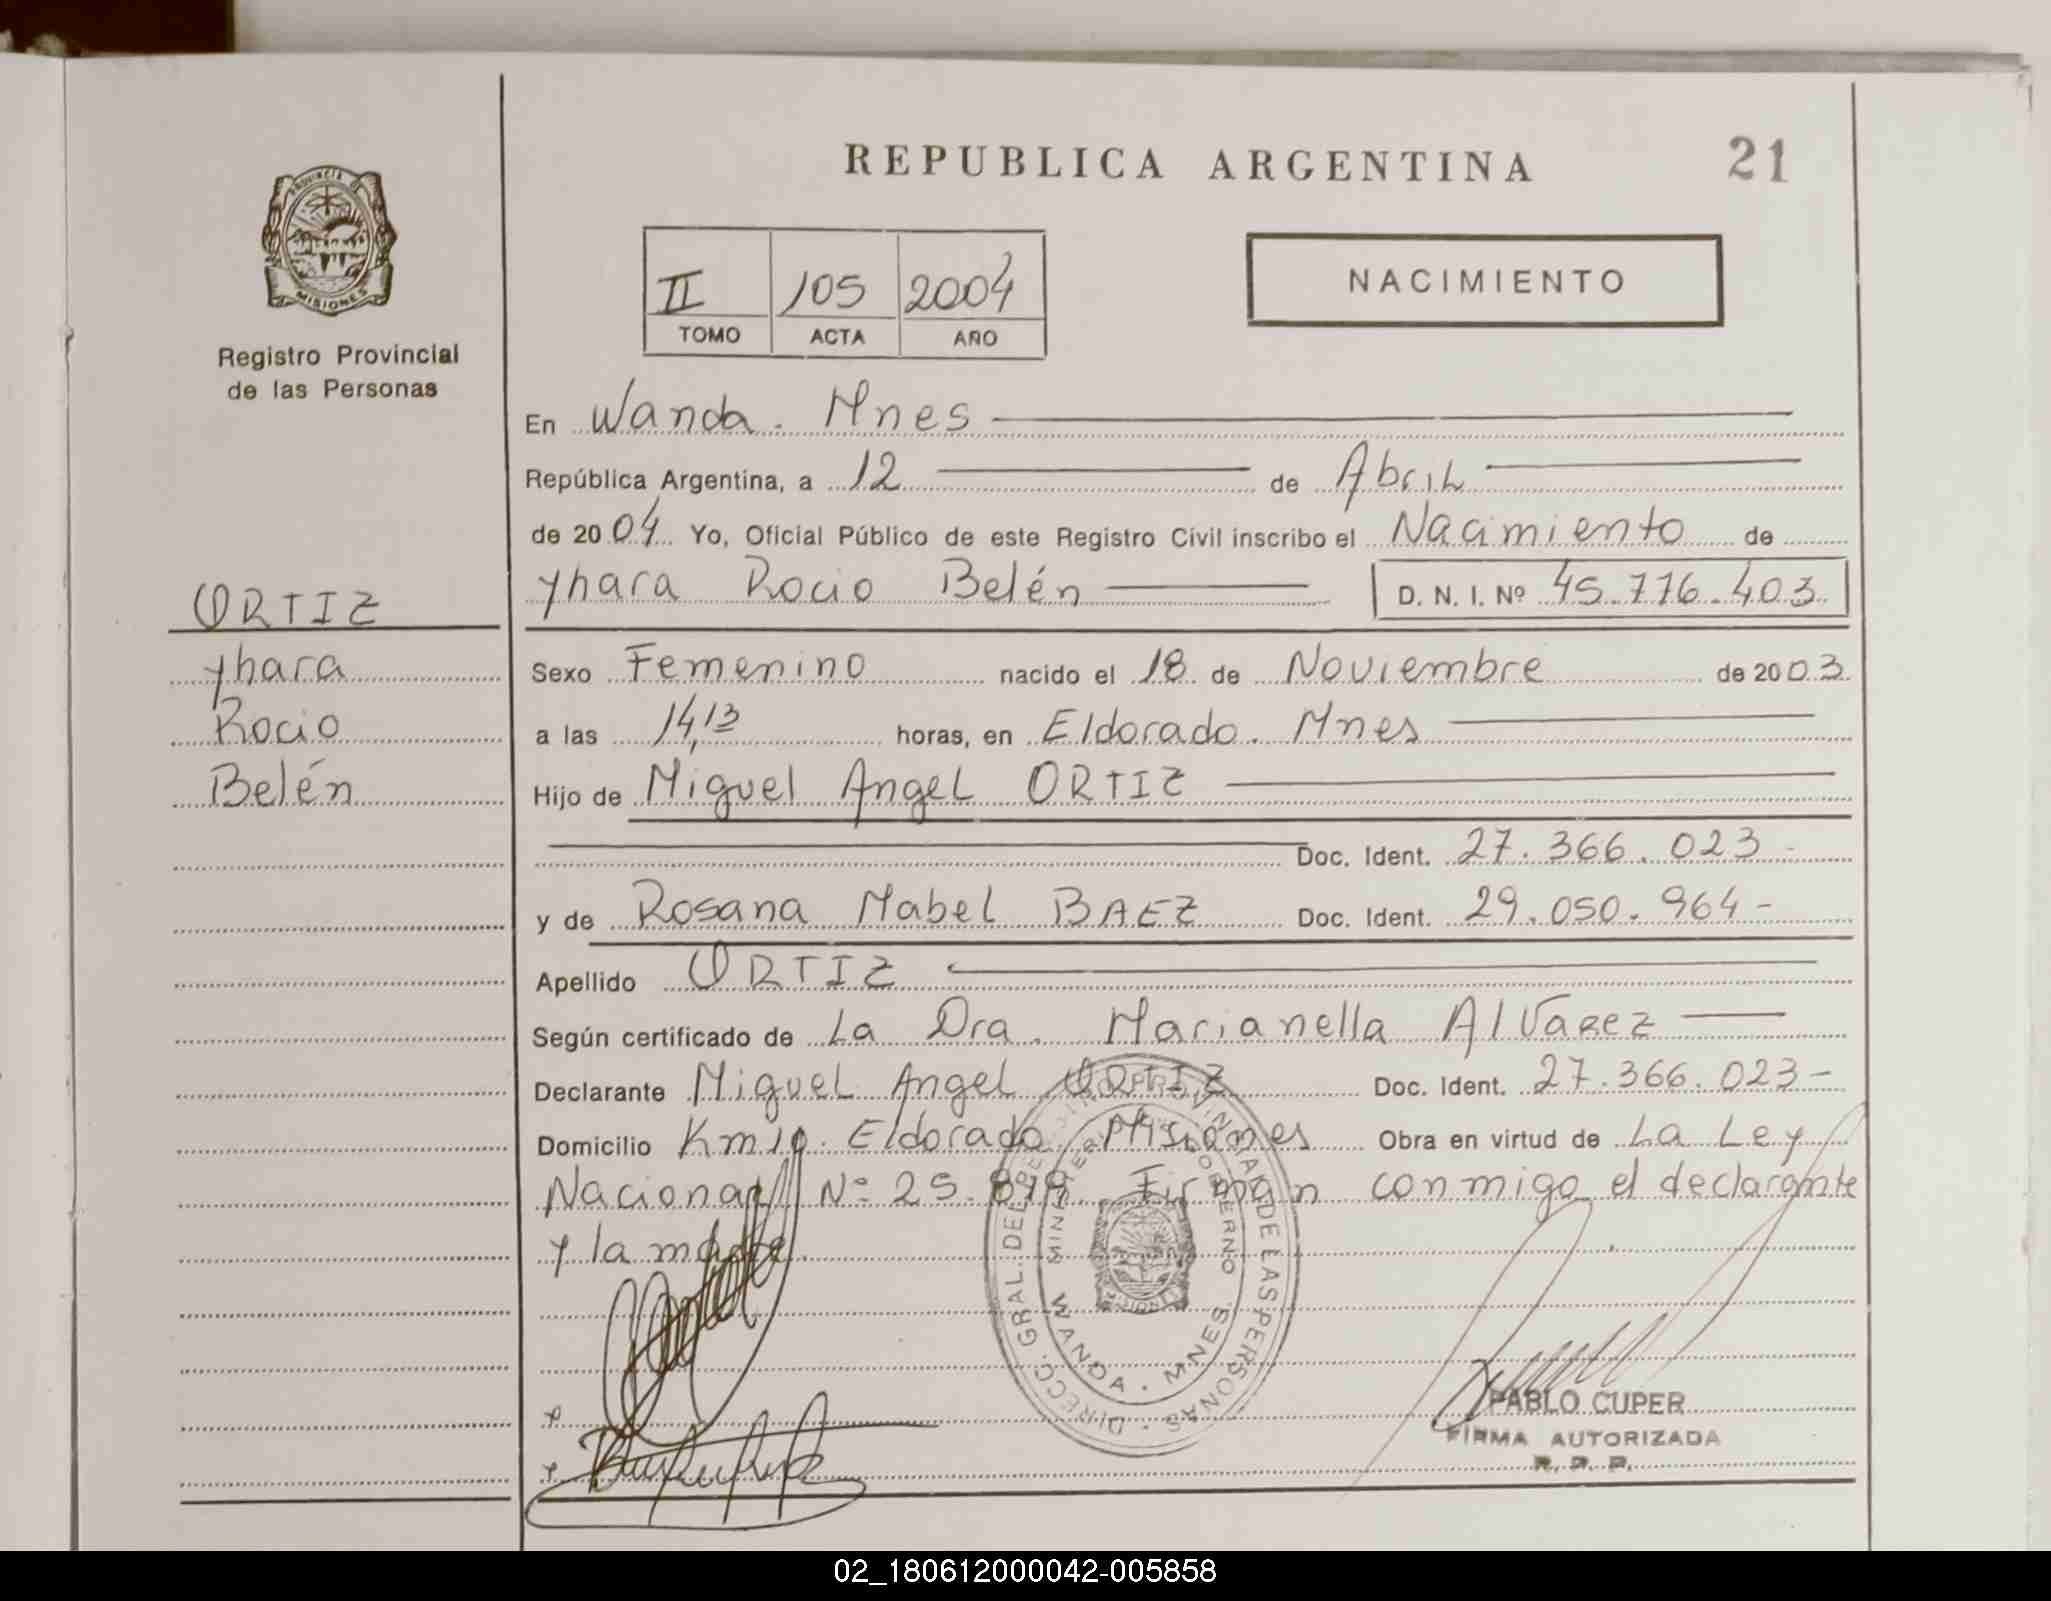 REPUBLICA ARGENTINA
21
PROVINCIA DE
MISIONES
Registro Provincial
de las Personas
II 105 2004
TOMO ACTA AÑO
NACIMIENTO
En Wanda. Mnes
República Argentina, a 12 de Abril
de 2004 Yo, Oficial Público de este Registro Civil inscribo el Nacimiento de
Yhara Rocio Belén D. N. I. Nº 45.776.403
ORTIZ
Yhara
Rocio
Belén
Sexo Femenino nacido el 18 de Noviembre de 2003
a las 14,13 horas, en Eldorado. Mnes
Hijo de Miguel Angel ORTIZ
Doc. Ident. 27.366.023-
y de Rosana Mabel BAEZ Doc. Ident. 29.050.964-
Apellido ORTIZ
Según certificado de La Dra. Marianella Alvarez
Declarante Miguel Angel ORTIZ Doc. Ident. 27.366.023-
Domicilio Km10. Eldorado. Misiones Obra en virtud de La Ley
Nacional Nº 25.819. Firman conmigo el declarante
y la madre.
DIRECC. GRAL. DEL REGISTRO PROVINCIAL DE LAS PERSONAS
MINISTERIO DE GOBIERNO
WANDA - MNES
PABLO CUPER
FIRMA AUTORIZADA
R. P. P.
02_180612000042-005858